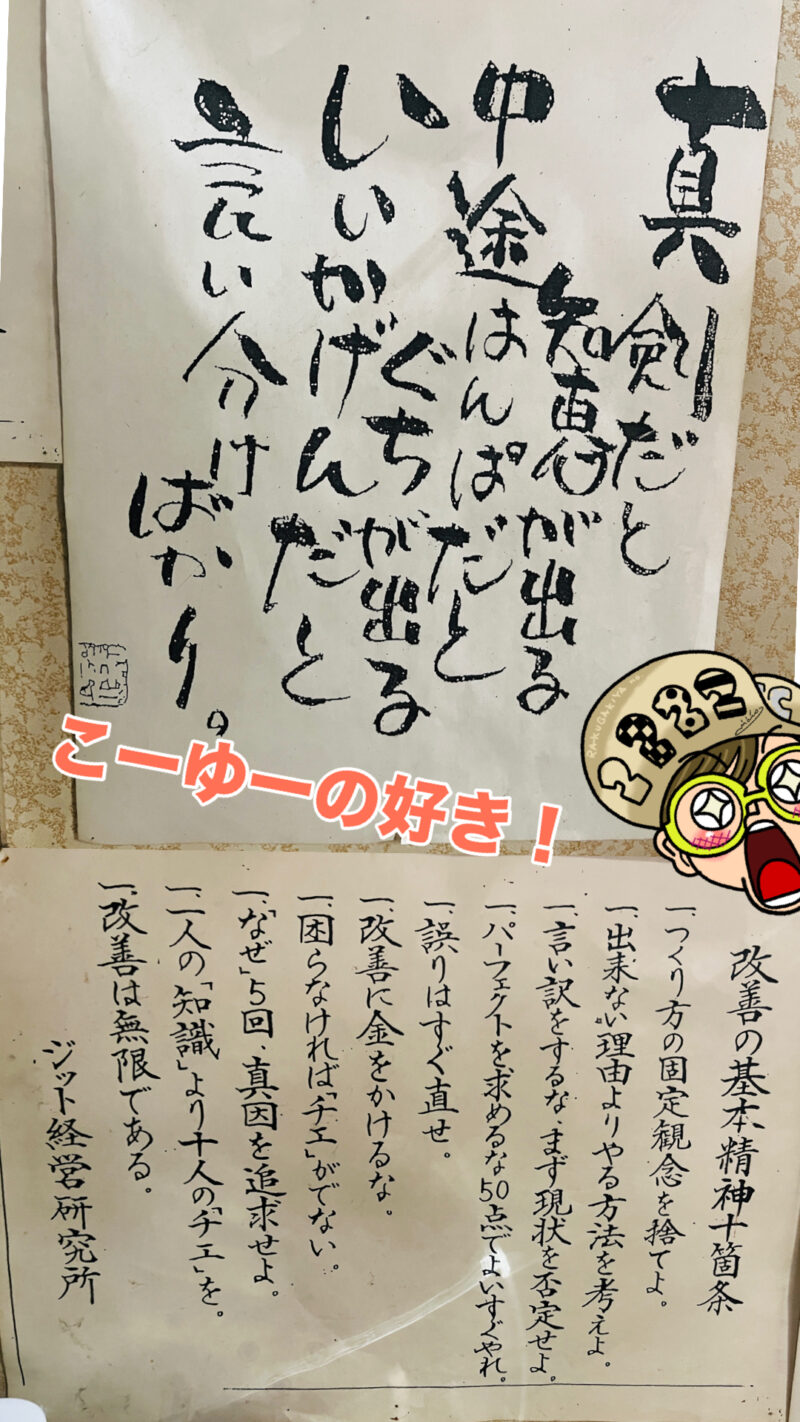 真剣だと
知恵が出る
中途はんぱだと
ぐちが出る
いいかげんだと
言い分け
ばかり。
こーゆーの好き！
RAKUGAKIYA
2222
改善の基本精神十箇条
一、つくり方の固定観念を捨てよ。
一、出来ない理由よりやる方法を考えよ。
一、言い訳をするな、まず現状を否定せよ。
一、パーフェクトを求めるな50点でよいすぐやれ。
一、誤りはすぐ直せ。
一、改善に金をかけるな。
一、困らなければ「チエ」がでない。
一、「なぜ」5回、真因を追求せよ。
一、一人の「知識」より十人の「チエ」を。
一、改善は無限である。
ジット経営研究所